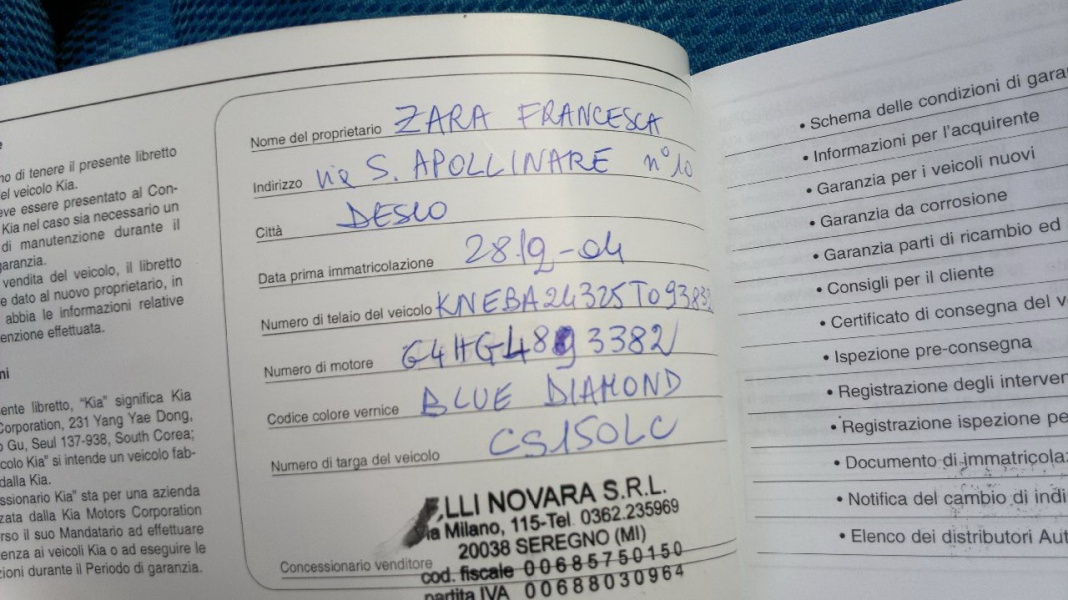 no di tenere il presente libretto
el veicolo Kia.
eve essere presentato al Con-
Kia nel caso sia necessario un
di manutenzione durante il
garanzia.
vendita del veicolo, il libretto
e dato al nuovo proprietario, in
abbia le informazioni relative
enzione effettuata.
ni
ente libretto, "Kia" significa Kia
Corporation, 231 Yang Yae Dong,
o Gu, Seul 137-938, South Corea;
colo Kia" si intende un veicolo fab-
dalla Kia.
essionario Kia" sta per una azienda
zata dalla Kia Motors Corporation
rso il suo Mandatario ad effettuare
enza ai veicoli Kia o ad eseguire le
zioni durante il Periodo di garanzia.
Nome del proprietario ZARA FRANCESCA
Indirizzo via S. APOLLINARE n° 10
Città DESIO
Data prima immatricolazione 28/9-04
Numero di telaio del veicolo
Numero di motore
Codice colore vernice BLUE DIAMOND
Numero di targa del veicolo CS150LC
LLI NOVARA S.R.L.
ia Milano, 115-Tel. 0362.235969
20038 SEREGNO (MI)
Concessionario venditore
cod. fiscale 00685750150
partita IVA 00688030964
• Schema delle condizioni di gara
• Informazioni per l'acquirente
• Garanzia per i veicoli nuovi
• Garanzia da corrosione
• Garanzia parti di ricambio ed
• Consigli per il cliente
• Certificato di consegna del v
• Ispezione pre-consegna
• Registrazione degli interven
• Registrazione ispezione pe
• Documento di immatricolaz
• Notifica del cambio di indi
• Elenco dei distributori Aut